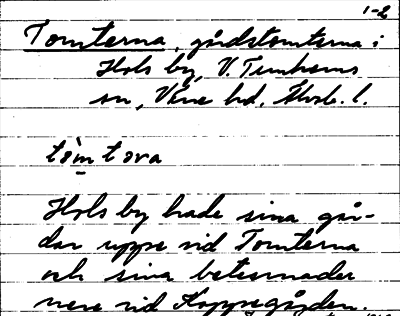 1-2
Tomterna, gårdstomterna i
Hols by, V. Tunhems
sn, Väne hd, Älvsb. l.
tòmtora
Hols by hade sina går-
dar uppe vid Tomterna
och sina betesmader
nere vid Kopparegården.